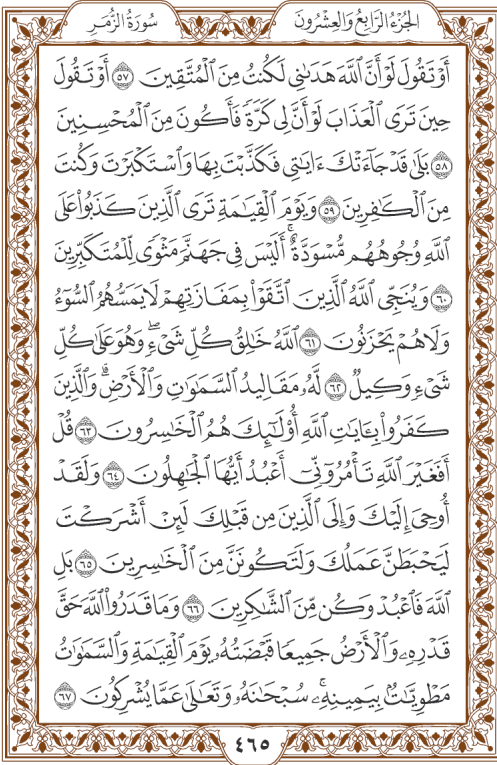 سُورَةُ الزُّمَرِ الجُزْءُ الرَّابِعُ وَالعِشْرُونَ
أَوْ تَقُولَ لَوْ أَنَّ ٱللَّهَ هَدَىٰنِى لَكُنتُ مِنَ ٱلْمُتَّقِينَ ٥٧ أَوْ تَقُولَ
حِينَ تَرَى ٱلْعَذَابَ لَوْ أَنَّ لِى كَرَّةً فَأَكُونَ مِنَ ٱلْمُحْسِنِينَ
٥٨ بَلَىٰ قَدْ جَآءَتْكَ ءَايَـٰتِى فَكَذَّبْتَ بِهَا وَٱسْتَكْبَرْتَ وَكُنتَ
مِنَ ٱلْكَـٰفِرِينَ ٥٩ وَيَوْمَ ٱلْقِيَـٰمَةِ تَرَى ٱلَّذِينَ كَذَبُوا۟ عَلَى
ٱللَّهِ وُجُوهُهُم مُّسْوَدَّةٌ ۚ أَلَيْسَ فِى جَهَنَّمَ مَثْوًى لِّلْمُتَكَبِّرِينَ
٦٠ وَيُنَجِّى ٱللَّهُ ٱلَّذِينَ ٱتَّقَوْا۟ بِمَفَازَتِهِمْ لَا يَمَسُّهُمُ ٱلسُّوٓءُ
وَلَا هُمْ يَحْزَنُونَ ٦١ ٱللَّهُ خَـٰلِقُ كُلِّ شَىْءٍ ۖ وَهُوَ عَلَىٰ كُلِّ
شَىْءٍ وَكِيلٌ ٦٢ لَّهُۥ مَقَالِيدُ ٱلسَّمَـٰوَٰتِ وَٱلْأَرْضِ ۗ وَٱلَّذِينَ
كَفَرُوا۟ بِـَٔايَـٰتِ ٱللَّهِ أُو۟لَـٰٓئِكَ هُمُ ٱلْخَـٰسِرُونَ ٦٣ قُلْ
أَفَغَيْرَ ٱللَّهِ تَأْمُرُوٓنِّىٓ أَعْبُدُ أَيُّهَا ٱلْجَـٰهِلُونَ ٦٤ وَلَقَدْ
أُوحِىَ إِلَيْكَ وَإِلَى ٱلَّذِينَ مِن قَبْلِكَ لَئِنْ أَشْرَكْتَ
لَيَحْبَطَنَّ عَمَلُكَ وَلَتَكُونَنَّ مِنَ ٱلْخَـٰسِرِينَ ٦٥ بَلِ
ٱللَّهَ فَٱعْبُدْ وَكُن مِّنَ ٱلشَّـٰكِرِينَ ٦٦ وَمَا قَدَرُوا۟ ٱللَّهَ حَقَّ
قَدْرِهِۦ وَٱلْأَرْضُ جَمِيعًا قَبْضَتُهُۥ يَوْمَ ٱلْقِيَـٰمَةِ وَٱلسَّمَـٰوَٰتُ
مَطْوِيَّـٰتٌۢ بِيَمِينِهِۦ ۚ سُبْحَـٰنَهُۥ وَتَعَـٰلَىٰ عَمَّا يُشْرِكُونَ ٦٧
٤٦٥